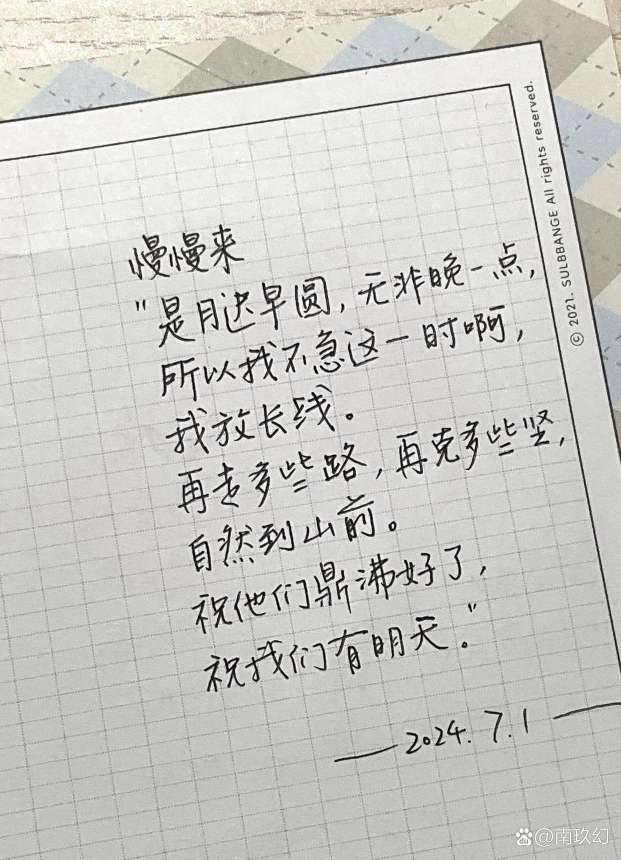 慢慢来
"是月迟早圆，无非晚一点，
所以我不急这一时啊，
我放长线。
再走多些路，再克多些坚，
自然到山前。
祝他们鼎沸好了，
祝我们有明天。"
— 2024.7.1 —
© 2021. SULBBANGE All rights reserved.
南玖幻